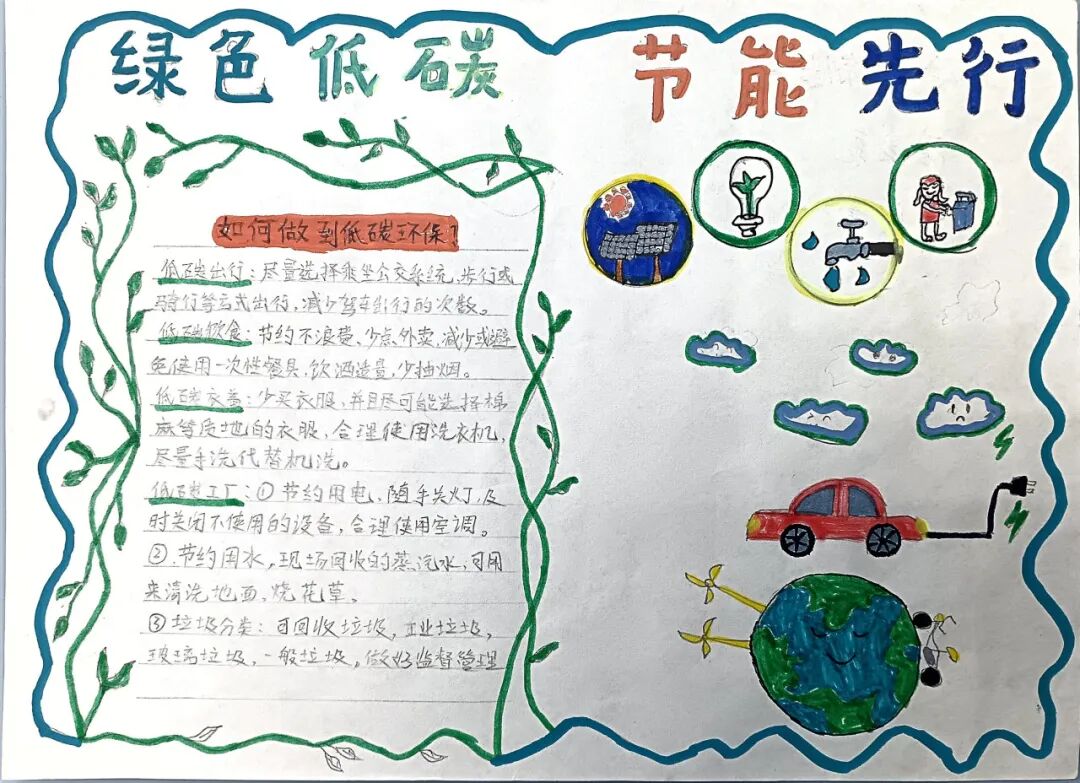 绿色低碳 节能先行
如何做到低碳环保?
低碳出行:尽量选择乘坐公交系统、步行或
骑行等方式出行,减少驾车出行的次数。
低碳饮食:节约不浪费、少点外卖,减少或避
免使用一次性餐具,饮酒适量,少抽烟。
低碳衣着:少买衣服,并且尽可能选择棉
麻等质地的衣服,合理使用洗衣机,
尽量手洗代替机洗。
低碳工厂:①节约用电,随手关灯,及
时关闭不使用的设备,合理使用空调。
②节约用水,现场回收的蒸汽水,可用
来清洗地面,烧花草。
③垃圾分类:可回收垃圾,工业垃圾,
玻璃垃圾,一般垃圾,做好监督管理